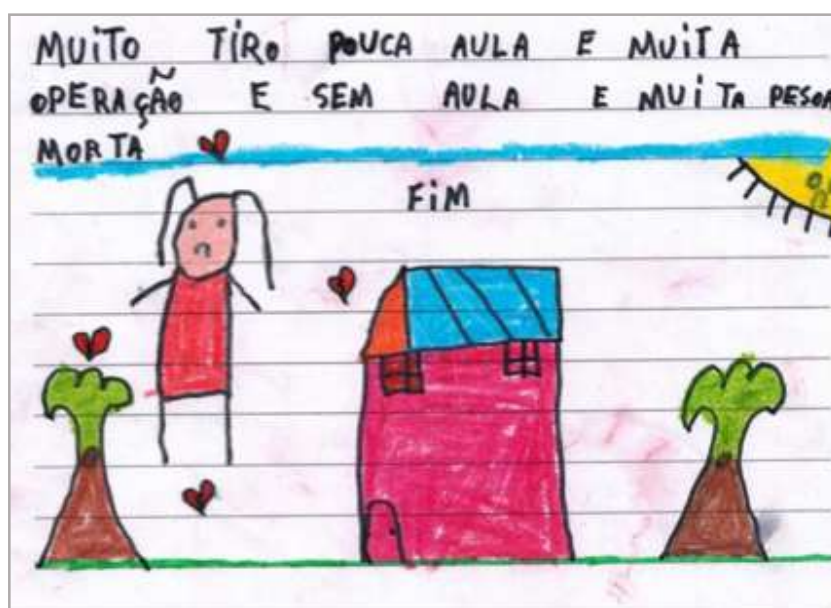 MUITO TIRO POUCA AULA E MUITA
OPERAÇÃO E SEM AULA E MUITA PESOA
MORTA
FIM